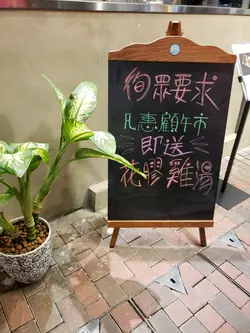 徇眾要求
凡惠顧午市
即送
花膠雞湯